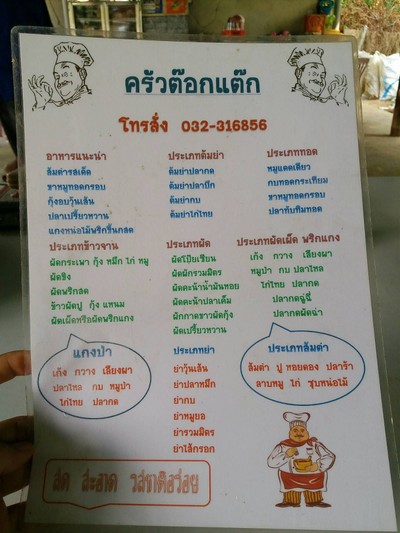 ครัวต๊อกแต๊ก
โทรสั่ง 032-316856
อาหารแนะนำ
ส้มตำรสเด็ด
ขาหมูทอดกรอบ
กุ้งอบวุ้นเส้น
ปลาเปรี้ยวหวาน
แกงหน่อไม้พริกขี้นกสด
ประเภทต้มยำ
ต้มยำปลากด
ต้มยำปลาบึก
ต้มยำกบ
ต้มยำไก่ไทย
ประเภททอด
หมูแดดเดียว
กบทอดกระเทียม
ขาหมูทอดกรอบ
ปลาทับทิมทอด
ประเภทข้าวจาน
ผัดกระเพา กุ้ง หมึก ไก่ หมู
ผัดขิง
ผัดพริกสด
ข้าวผัดปู กุ้ง แหนม
ผัดเผ็ดหรือผัดพริกแกง
ประเภทผัด
ผัดโป๊ยเซียน
ผัดผักรวมมิตร
ผัดคะน้าน้ำมันหอย
ผัดคะน้าปลาเค็ม
ผักกาดขาวผัดกุ้ง
ผัดเปรี้ยวหวาน
ประเภทผัดเผ็ด พริกแกง
เก้ง กวาง เลียงผา
หมูป่า กบ ปลาไหล
ไก่ไทย ปลากด
ปลากดฉู่ฉี่
ปลากดผัดฉ่า
แกงป่า
เก้ง กวาง เลียงผา
ปลาไหล กบ หมูป่า
ไก่ไทย ปลากด
ประเภทยำ
ยำวุ้นเส้น
ยำปลาหมึก
ยำกบ
ยำหมูยอ
ยำรวมมิตร
ยำไส้กรอก
ประเภทส้มตำ
ส้มตำ ปู หอยดอง ปลาร้า
ลาบหมู ไก่ ซุบหน่อไม้
สด สะอาด รสชาติอร่อย